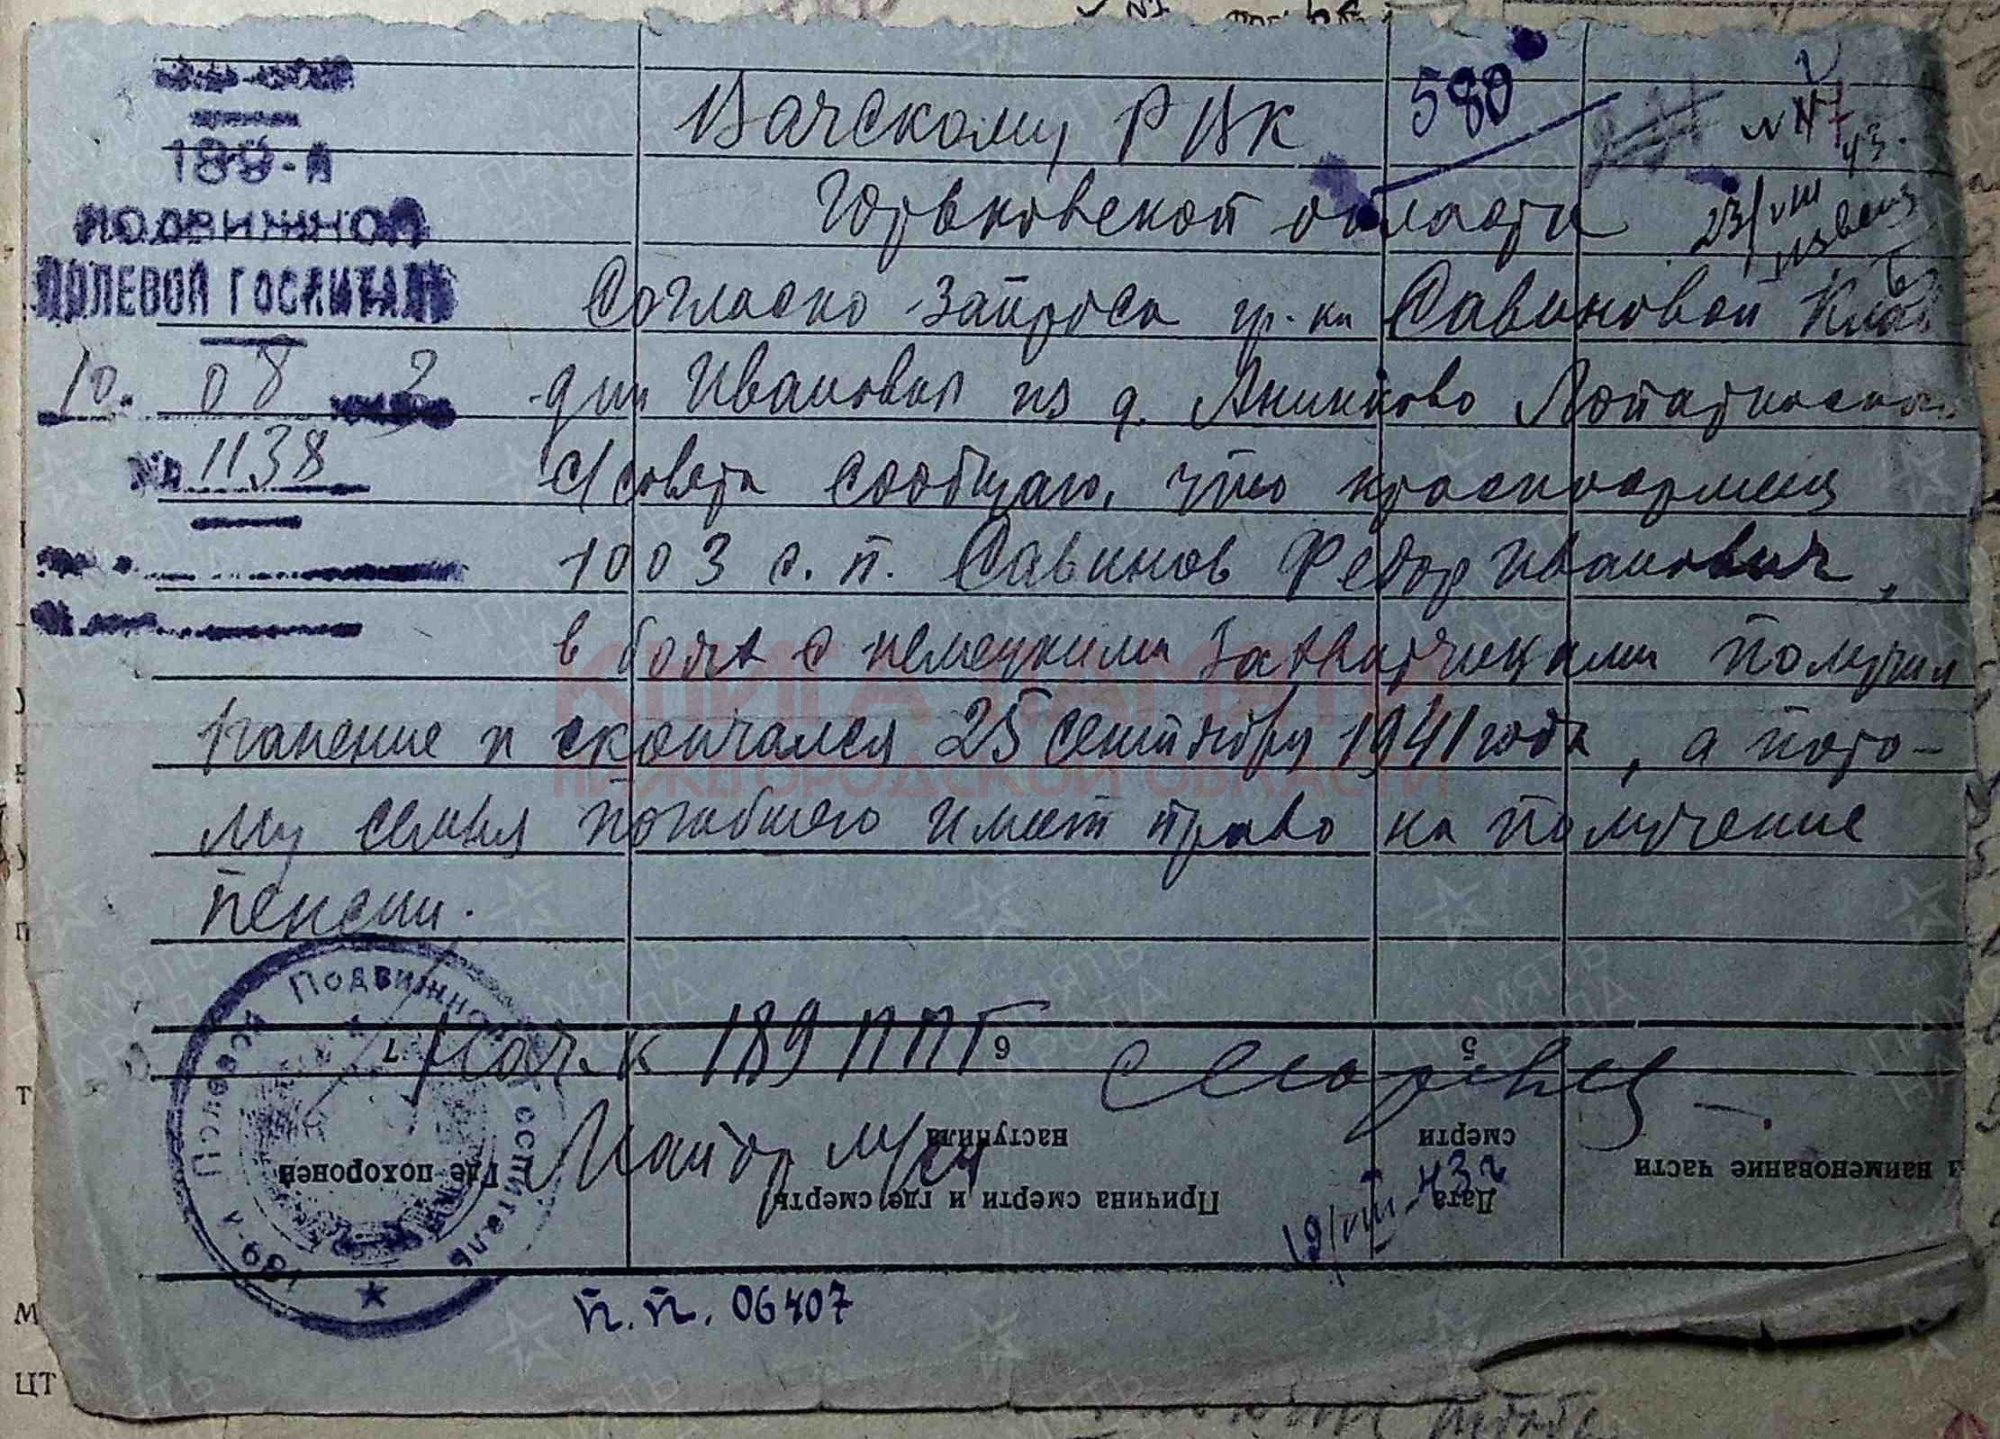 189-й
ПОДВИЖНОЙ
ПОЛЕВОЙ ГОСПИТАЛЬ
10. 08 3
№ 1138
580
Вачскому РВК
Горьковской области
23/VIII
Согласно запроса гр-ки Савиновой Клав
дии Ивановны из д. Аникково
с/совета сообщаю, что красноармеец
1003 с. п. Савинов Федор Иванович,
в боях с немецкими захватчиками получил
ранение и скончался 25 сентября 1941 года, а пото-
му семья погибшего имеет право на получение
пенсии.
Нач-к 189 ППГ
Майор м/сл
19/VIII-43г
п.п. 06407
189-й Полевой Подвижной Госпиталь
7
6
5
Где похоронен
Причина смерти и где смерть
наступила
Дата
смерти
и наименование части
КНИГА ПАМЯТИ
НИЖЕГОРОДСКОЙ ОБЛАСТИ
ПАМЯТЬ
НАРОДА